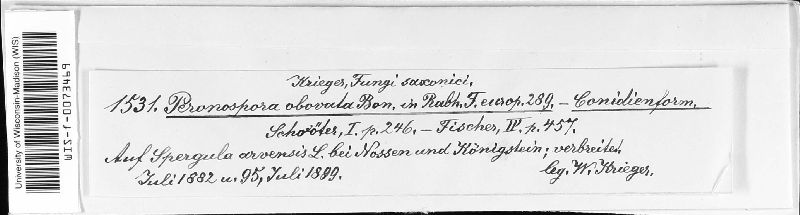 University of Wisconsin-Madison (WIS)
WIS-f-0073449
Krieger, Fungi saxonici.
1531. Peronospora obovata Bon. in Rabh. F. europ. 289. – Conidienform.
Schröter, I. p. 246. – Fischer, IV. p. 457.
Auf Spergula arvensis L. bei Nossen und Königstein; verbreitet.
Juli 1882 u. 95, Juli 1899.
leg. W. Krieger.